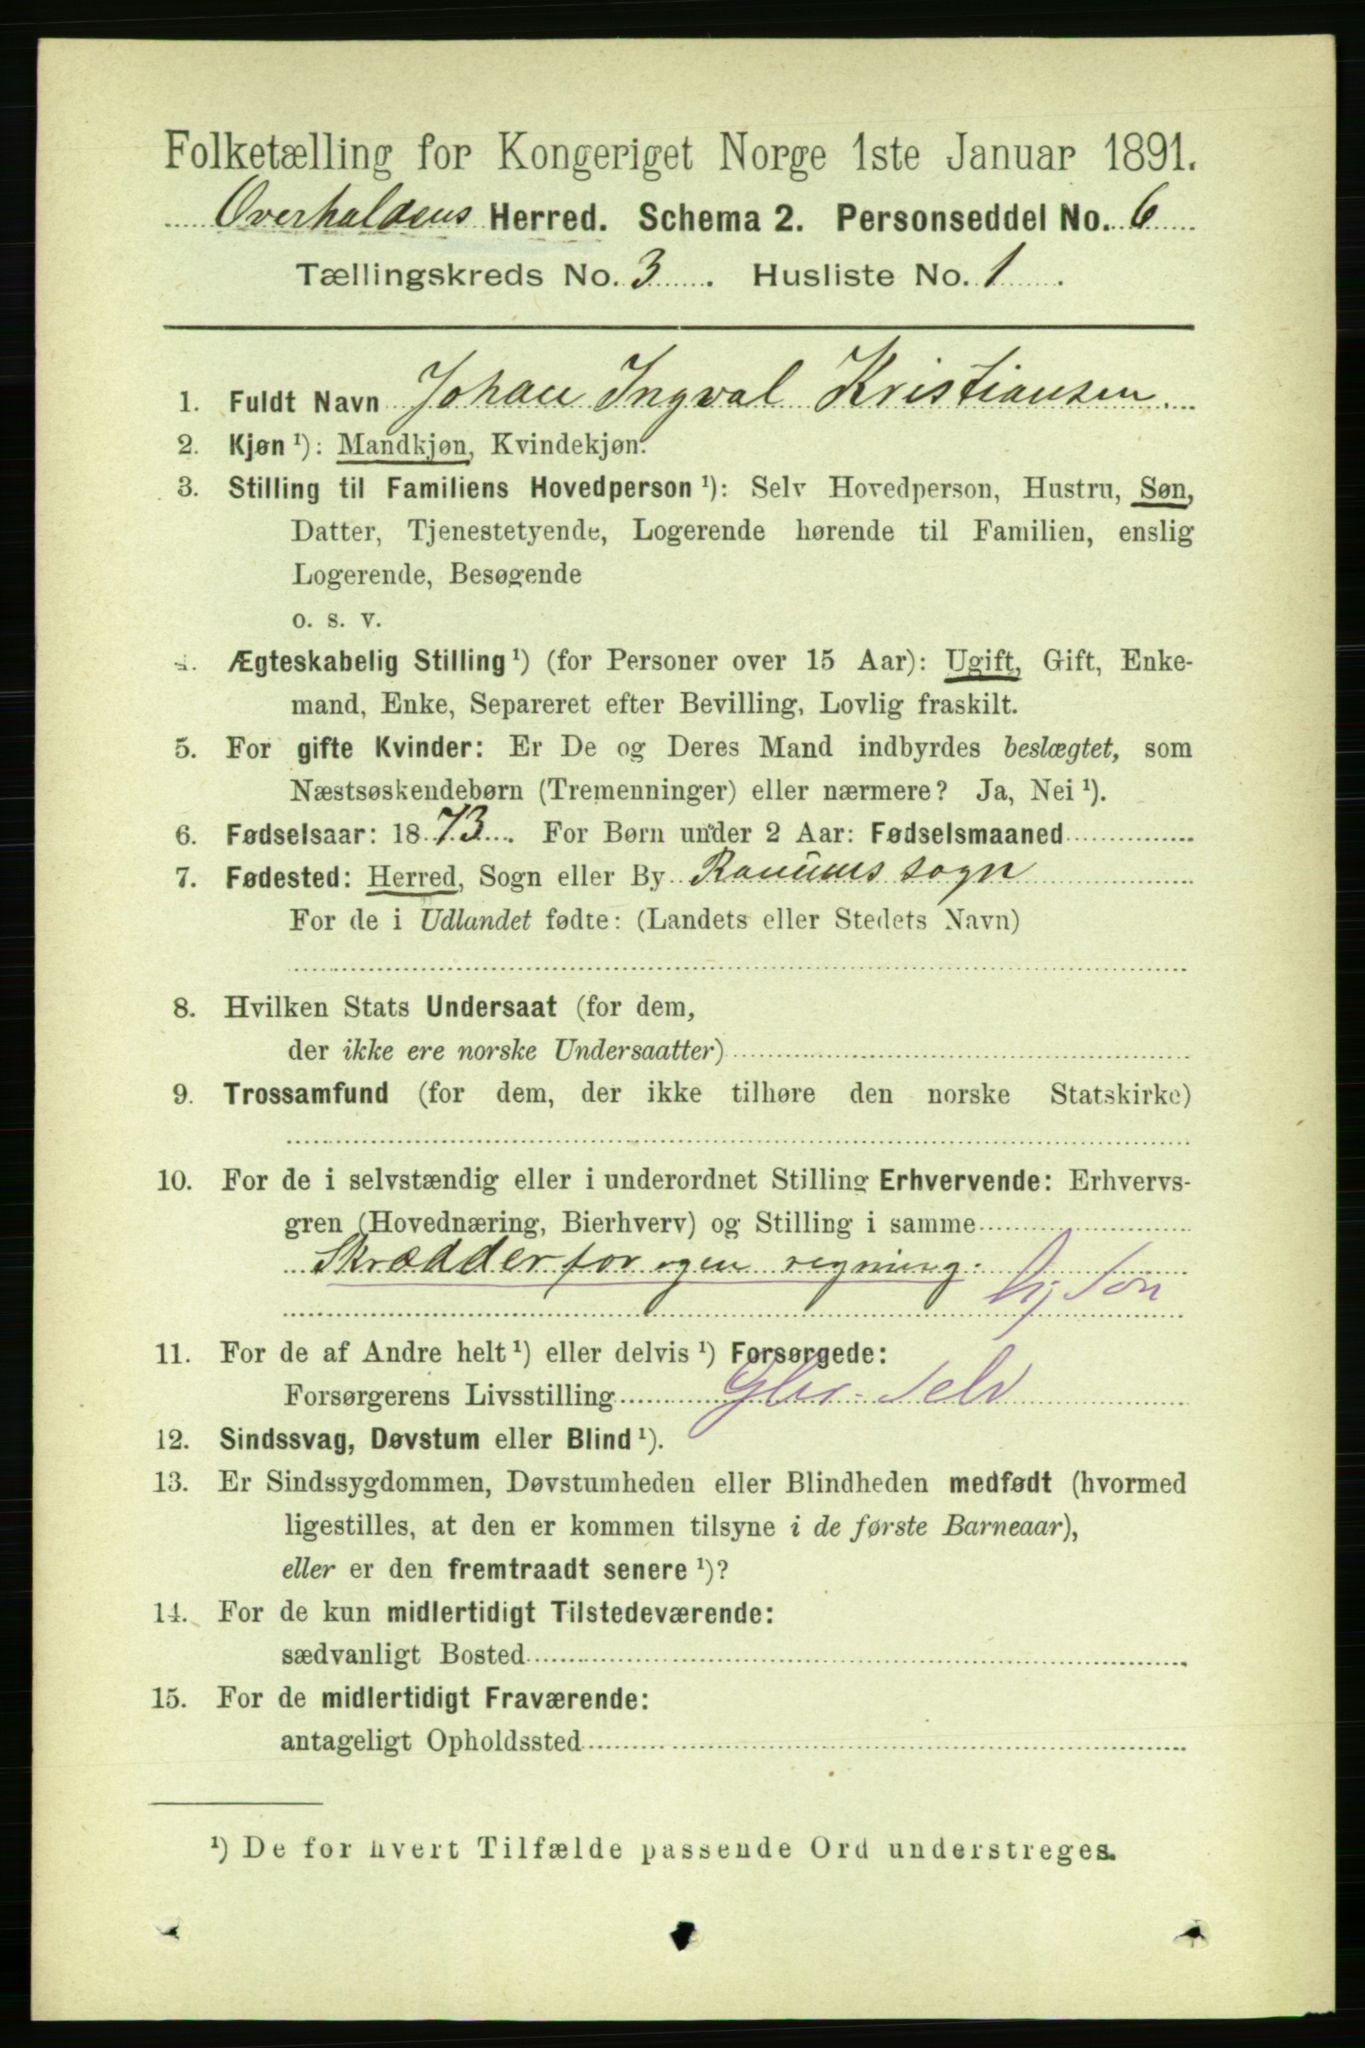 Folketælling for Kongeriget Norge 1ste Januar 1891.
Overhaldens Herred. Schema 2. Personseddel No. 6
Tællingskreds No. 3. Husliste No. 1.
1. Fuldt Navn Johan Ingval Kristiansen.
2. Kjøn ¹): Mandkjøn, Kvindekjøn.
3. Stilling til Familiens Hovedperson ¹): Selv Hovedperson, Hustru, Søn,
Datter, Tjenestetyende, Logerende hørende til Familien, enslig
Logerende, Besøgende
o. s. v.
4. Ægteskabelig Stilling ¹) (for Personer over 15 Aar): Ugift, Gift, Enke-
mand, Enke, Separeret efter Bevilling, Lovlig fraskilt.
5. For gifte Kvinder: Er De og Deres Mand indbyrdes beslægtet, som
Næstsøskendebørn (Tremenninger) eller nærmere? Ja, Nei ¹).
6. Fødselsaar: 1873. For Børn under 2 Aar: Fødselsmaaned
7. Fødested: Herred, Sogn eller By Ranums sogn
For de i Udlandet fødte: (Landets eller Stedets Navn)
8. Hvilken Stats Undersaat (for dem,
der ikke ere norske Undersaatter)
9. Trossamfund (for dem, der ikke tilhøre den norske Statskirke)
10. For de i selvstændig eller i underordnet Stilling Erhvervende: Erhvervs-
gren (Hovednæring, Bierhverv) og Stilling i samme
Skrædder for egen regning.
Søn
11. For de af Andre helt ¹) eller delvis ¹) Forsørgede:
Forsørgerens Livsstilling Gbr. Selv
12. Sindssvag, Døvstum eller Blind ¹).
13. Er Sindssygdommen, Døvstumheden eller Blindheden medfødt (hvormed
ligestilles, at den er kommen tilsyne i de første Barneaar),
eller er den fremtraadt senere ¹)?
14. For de kun midlertidigt Tilstedeværende:
sædvanligt Bosted
15. For de midlertidigt Fraværende:
antageligt Opholdssted
¹) De for hvert Tilfælde passende Ord understreges.